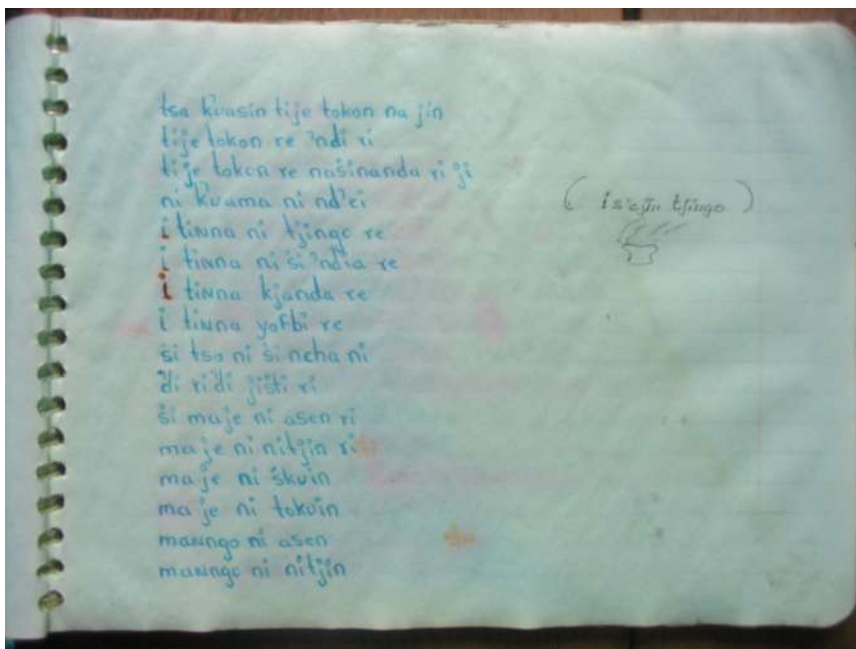 tsa k'uasin tije tokon na jin
tije tokon re ʔndi ri
tije tokon re našinanda ri ji
ni k'uama ni nd'ei
i tiɴna ni tjingo re
i tiɴna ni ši ʔndia re
i tiɴna kjanda re
i tiɴna re
ši tso ni ši ncha ni
ši maje ni asen ri
maje ni nitjin ri
maje ni škuin
maje ni tokuin
maɴngo ni asen
maɴngo ni nitjin
( tjingo )